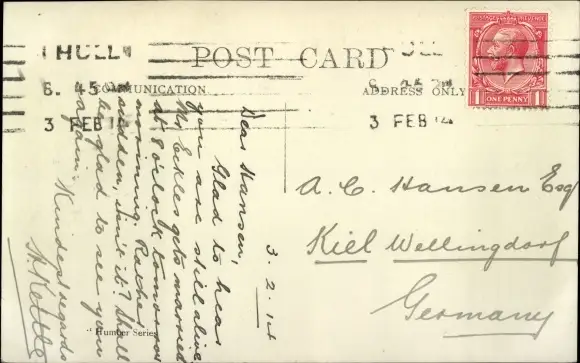 HULL
6. 45 PM
3 FEB 14
POST CARD
COMMUNICATION
ADDRESS ONLY
3 FEB 14
POSTAGE REVENUE
ONE PENNY
1
1
3. 2. 14
Dear Hansen,
Glad to hear
you are still alive
Mr Eckles gets married
at 8 o'clock tomorrow
morning. Rather
sudden, isn't it? Shall
be glad to see you
again. Kindest regards
A. C. Hansen Esq
Kiel Wellingdorf
Germany
"Humber Series"